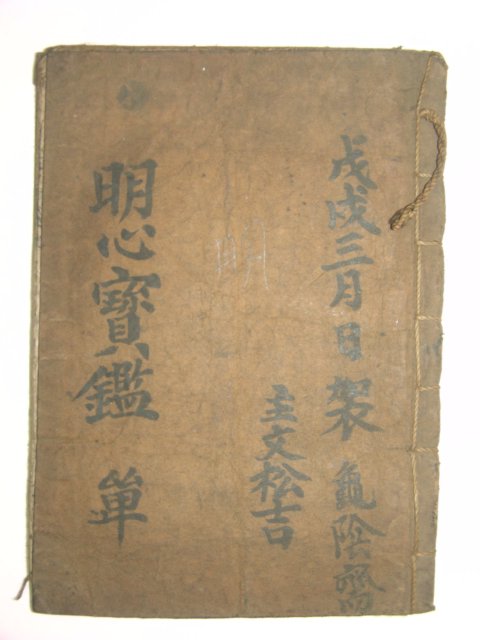 戊戌三月日製 龜陰齋
主文松吉
明
明心寶鑑 單